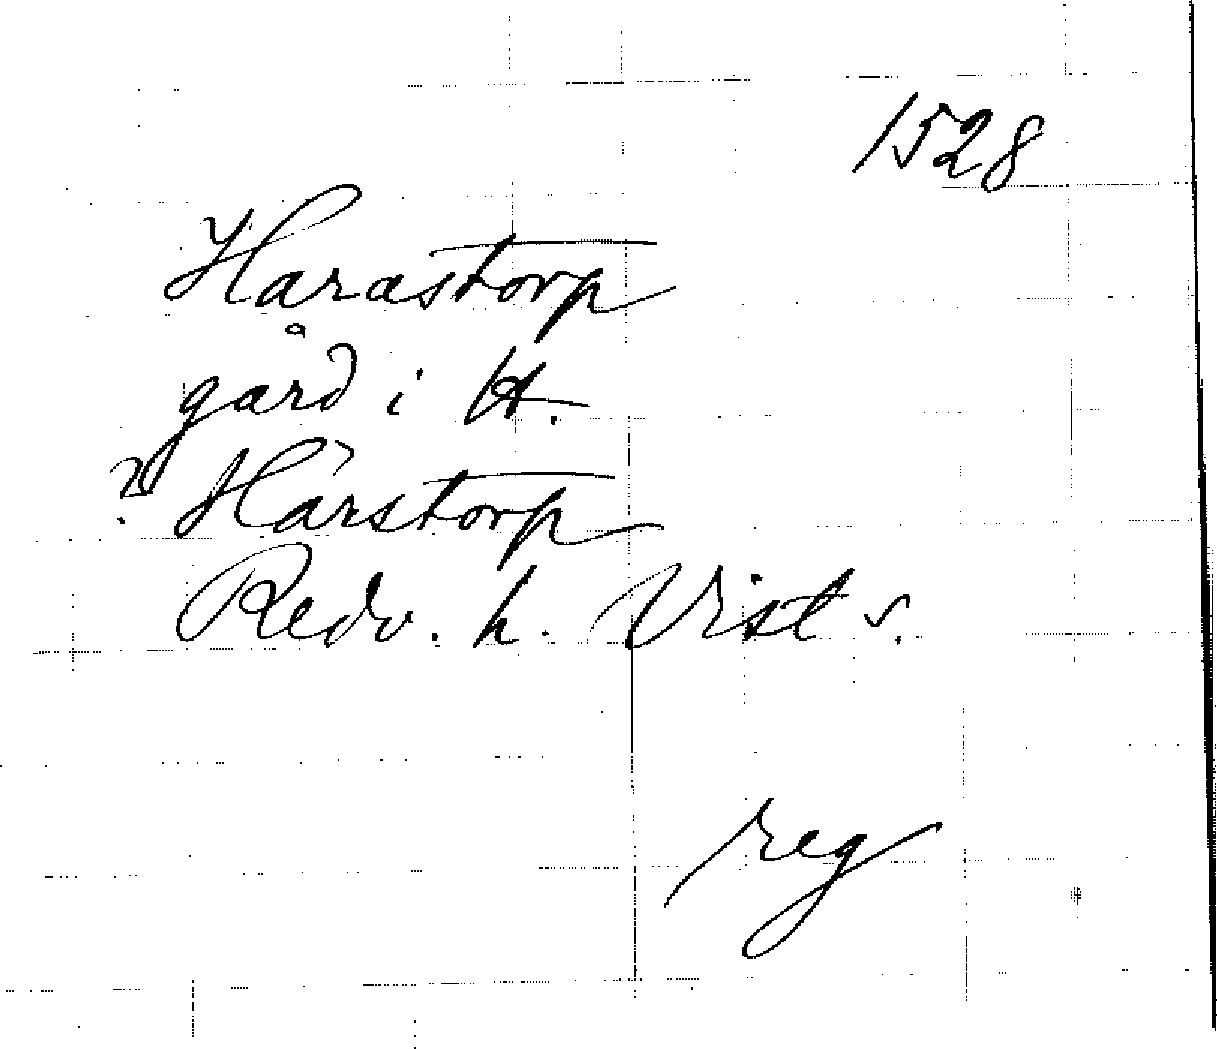 1528
Harastorp
gård i
? Hårstorp
Redv. h. Vist s.
reg